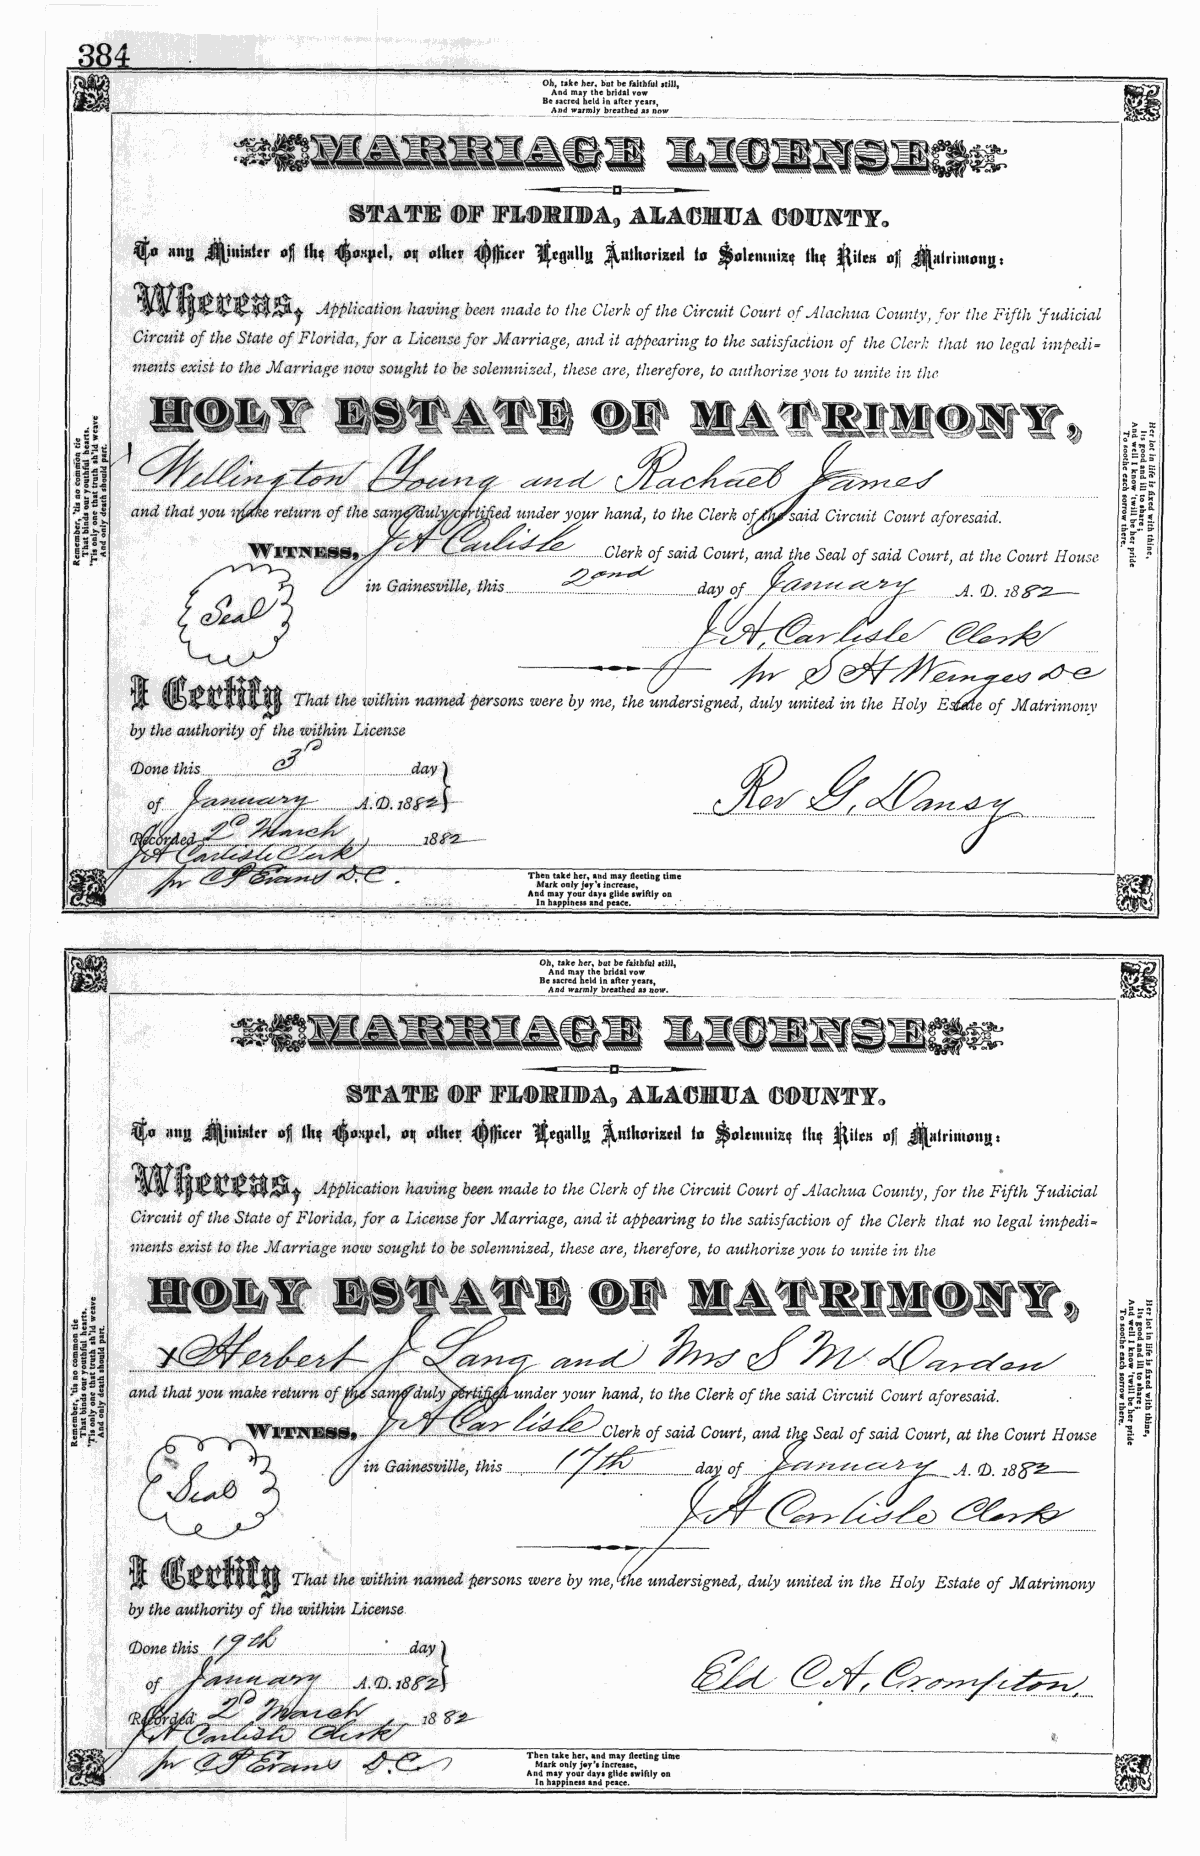 384
Oh, take her, but be faithful still,
And may the bridal vow
Be sacred held in after years,
And warmly breathed as now
MARRIAGE LICENSE
STATE OF FLORIDA, ALACHUA COUNTY.
To any Minister of the Gospel, or other Officer Legally Authorized to Solemnize the Rites of Matrimony:
Whereas, Application having been made to the Clerk of the Circuit Court of Alachua County, for the Fifth Judicial
Circuit of the State of Florida, for a License for Marriage, and it appearing to the satisfaction of the Clerk that no legal impedi=
ments exist to the Marriage now sought to be solemnized, these are, therefore, to authorize you to unite in the
HOLY ESTATE OF MATRIMONY,
Wellington Young and Rachael James
and that you make return of the same duly certified under your hand, to the Clerk of the said Circuit Court aforesaid.
WITNESS, J A Carlisle Clerk of said Court, and the Seal of said Court, at the Court House
in Gainesville, this 2ond day of January A. D. 1882
Seal
J A, Carlisle Clerk
pr S H Weinges DC
I Certify That the within named persons were by me, the undersigned, duly united in the Holy Estate of Matrimony
by the authority of the within License
Done this 3d day
of January A.D. 1882
Rev G. Dansy
Recorded 2d March 1882
J A Carlisle Clerk
pr C P Evans D.C.
Remember, 'tis no common tie
That binds our youthful hearts,
'Tis only one that truth sh'ld weave
And only death should part.
Her lot in life is fixed with thine,
Its good and ill to share;
And well I know 'twill be her pride
To soothe each sorrow there.
Then take her, and may fleeting time
Mark only joy's increase,
And may your days glide swiftly on
In happiness and peace.
Oh, take her, but be faithful still,
And may the bridal vow
Be sacred held in after years,
And warmly breathed as now.
MARRIAGE LICENSE
STATE OF FLORIDA, ALACHUA COUNTY.
To any Minister of the Gospel, or other Officer Legally Authorized to Solemnize the Rites of Matrimony:
Whereas, Application having been made to the Clerk of the Circuit Court of Alachua County, for the Fifth Judicial
Circuit of the State of Florida, for a License for Marriage, and it appearing to the satisfaction of the Clerk that no legal impedi=
ments exist to the Marriage now sought to be solemnized, these are, therefore, to authorize you to unite in the
HOLY ESTATE OF MATRIMONY,
x Herbert J Lang and Mrs S M Darden
and that you make return of the same duly certified under your hand, to the Clerk of the said Circuit Court aforesaid.
WITNESS, J A Carlisle Clerk of said Court, and the Seal of said Court, at the Court House
in Gainesville, this 17th day of January A. D. 1882
Seal
J A Carlisle Clerk
I Certify That the within named persons were by me, the undersigned, duly united in the Holy Estate of Matrimony
by the authority of the within License
Done this 19th day
of January A.D. 1882
Eld C A, Crompton.
Recorded 2d March 1882
J A Carlisle Clerk
pr C P Evans D.C.
Remember, 'tis no common tie
That binds our youthful hearts,
'Tis only one that truth sh'ld weave
And only death should part.
Her lot in life is fixed with thine,
Its good and ill to share;
And well I know 'twill be her pride
To soothe each sorrow there.
Then take her, and may fleeting time
Mark only joy's increase,
And may your days glide swiftly on
In happiness and peace.